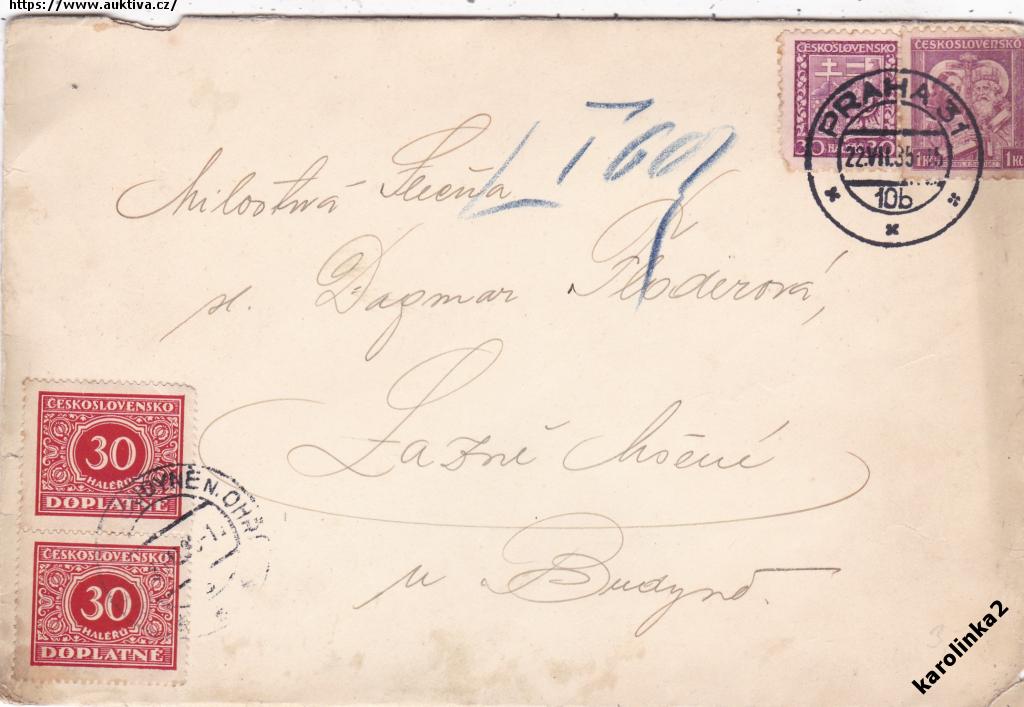 https://www.auktiva.cz/
ČESKOSLOVENSKO
30 HALÉŘŮ
ČESKOSLOVENSKO
1 Kč
PRAHA 31
22.VII.35
10b
T 60
Milostivá Slečna
sl. Dagmar Floderová,
Lázně Mšené
u Budyně.
ČESKOSLOVENSKO
30
HALÉŘŮ
DOPLATNÉ
ČESKOSLOVENSKO
30
HALÉŘŮ
DOPLATNÉ
UDYNĚ N. OHŘ
3
karolinka2